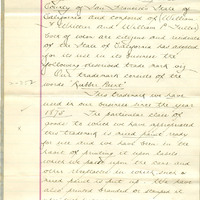 County of San Francisco State of
California and composed of William
F. Whittier and William P. Fuller
both of whom are citizens and residents
of the State of California has adopted
for its use in its business the
following described trade mark
Our trademark consists of the
words "Rubber Paint"
This trademark we have
used in our business since the year
1875. The particular class of
goods to which we have appropriated
this trademark is mixed paint ready
for use and we have been in the
habit of printing it upon labels
which we paste upon the cans and
other
mixed paint is put up. We have
also printed branded or stamped it